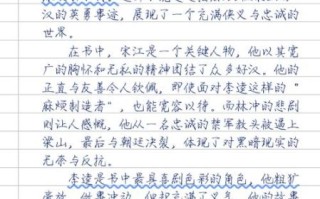 汉的英勇事迹，展现了一个充满侠义与忠诚的
世界。
在书中，宋江是一个关键人物，他以其宽
广的胸怀和无私的精神团结了众多好汉。他的
正直与友善令人钦佩，即使面对李逵这样的"
麻烦制造者"，也能宽容以待。而林冲的悲剧
则让人感慨，他从一名忠诚的禁军教头被逼上
梁山，最后与朝廷决裂，体现了对黑暗现实的
无奈与反抗。
李逵是书中最具喜剧色彩的角色，他粗犷